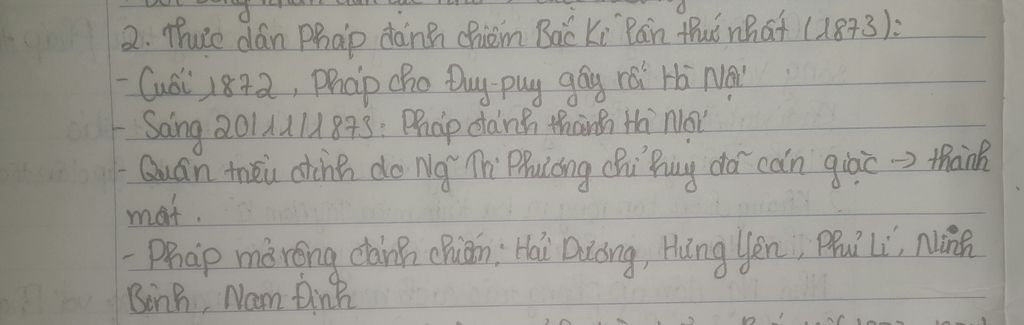 2. Thực dân Pháp đánh chiếm Bắc Kì lần thứ nhất (1873):
- Cuối 1872, Pháp cho Đuy-puy gây rối Hà Nội
- Sáng 20/11/1873: Pháp đánh thành Hà Nội
- Quân triều đình do Ng~ Tri Phương chỉ huy đã cản giặc → thành
mất.
- Pháp mở rộng đánh chiếm: Hải Dương, Hưng Yên, Phủ Lí, Ninh
Bình, Nam Định